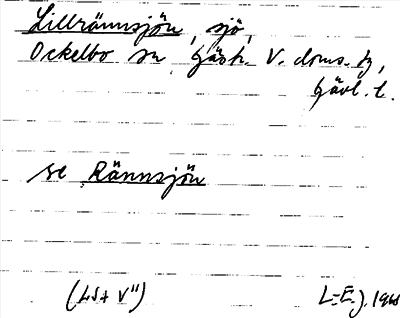 Lillrännsjön, sjö,
Ockelbo sn Gästr. V. doms. tg,
Gävl. l.
se Rännsjön
L-E.J. 1968